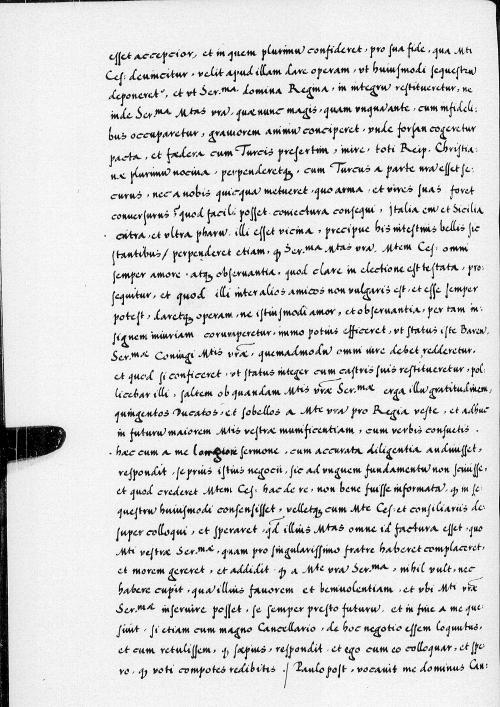 esset acceptior, et in quem plurimu confideret, pro sua fide, qua Mti
Ces: deuincitur, velit apud illam dare operam, vt huiusmodi sequestru
deponeret, et vt Ser.ma domina Regina, in integru restitueretur, ne
inde Ser.ma Mtas vra, quae nunc magis, quam vnqua ante, cum infideli-
bus occuparetur, grauiorem animu conciperet, vnde forsan cogeretur
pacta, et foedera cum Turcis presertim, inire, toti Reip. Christia-
nae plurimu nociua, perpenderetq, cum Turcus a parte vra esset se-
curus, nec a nobis quicqua metueret, quo arma, et vires suas foret
conuersurus? quod facili posset coniectura consequi, Italia em et Sicilia
citra, et vltra pharu illi esset vicina, precipue his intestinis bellis sic
stantibus / perpenderet etiam, q Ser.ma Mtas vra Mtem Ces: omni
semper amore, atq obseruantia, quod clare in electione est testata, pro-
sequitur, et quod illi inter alios amicos non vulgaris est, et esse semper
potest, daretq operam, ne istiusmodi amor, et obseruantia, per tam in-
signem iniuriam corrumperetur, immo potius efficeret, vt status iste Baren.
Ser.mae Coniugi Mtis vrae, quemadmodu omni iure debet redderetur,
et quod si conficeret, vt status integer cum castris suis restitueretur, pol-
licebar illi, saltem ob quandam Mtis vrae Ser.mae erga illu gratitudinem,
quingentos Ducatos, et sobellos a Mte vra pro Regia veste, et adhuc
in futuru maiorem Mtis vestrae munificentiam, cum verbis consuetis.
haec cum a me longiori sermone, cum accurata diligentia audiuisset,
respondit, se prius istius negocii, sic ad vnguem fundamentu non sciuisse,
et quod crederet Mtem Ces: hac de re, non bene fuisse informata, q in se-
questru huiusmodi consensisset, velletq cum Mte Ces: et consiliariis de-
super colloqui, et speraret, qd illius Mtas omne id factura esset, quo
Mti vestrae Ser.mae, quam pro singularissimo fratre haberet complaceret,
et morem gereret, et addidit, q a Mte vra Ser.ma, nihil vult, nec
habere cupit, qua illius fauorem et beniuolentiam, et vbi Mti vrae
Ser.mae inseruire posset, se semper presto futuru, et in fine a me que-
siuit, si etiam cum magno Cancellario, de hoc negotio essem loquutus,
et cum retulissem, q saepius, respondit, et ego cum eo colloquar, et spe-
ro, q voti compotes redibitis ./ Paulo post, vocauit me dominus Can-